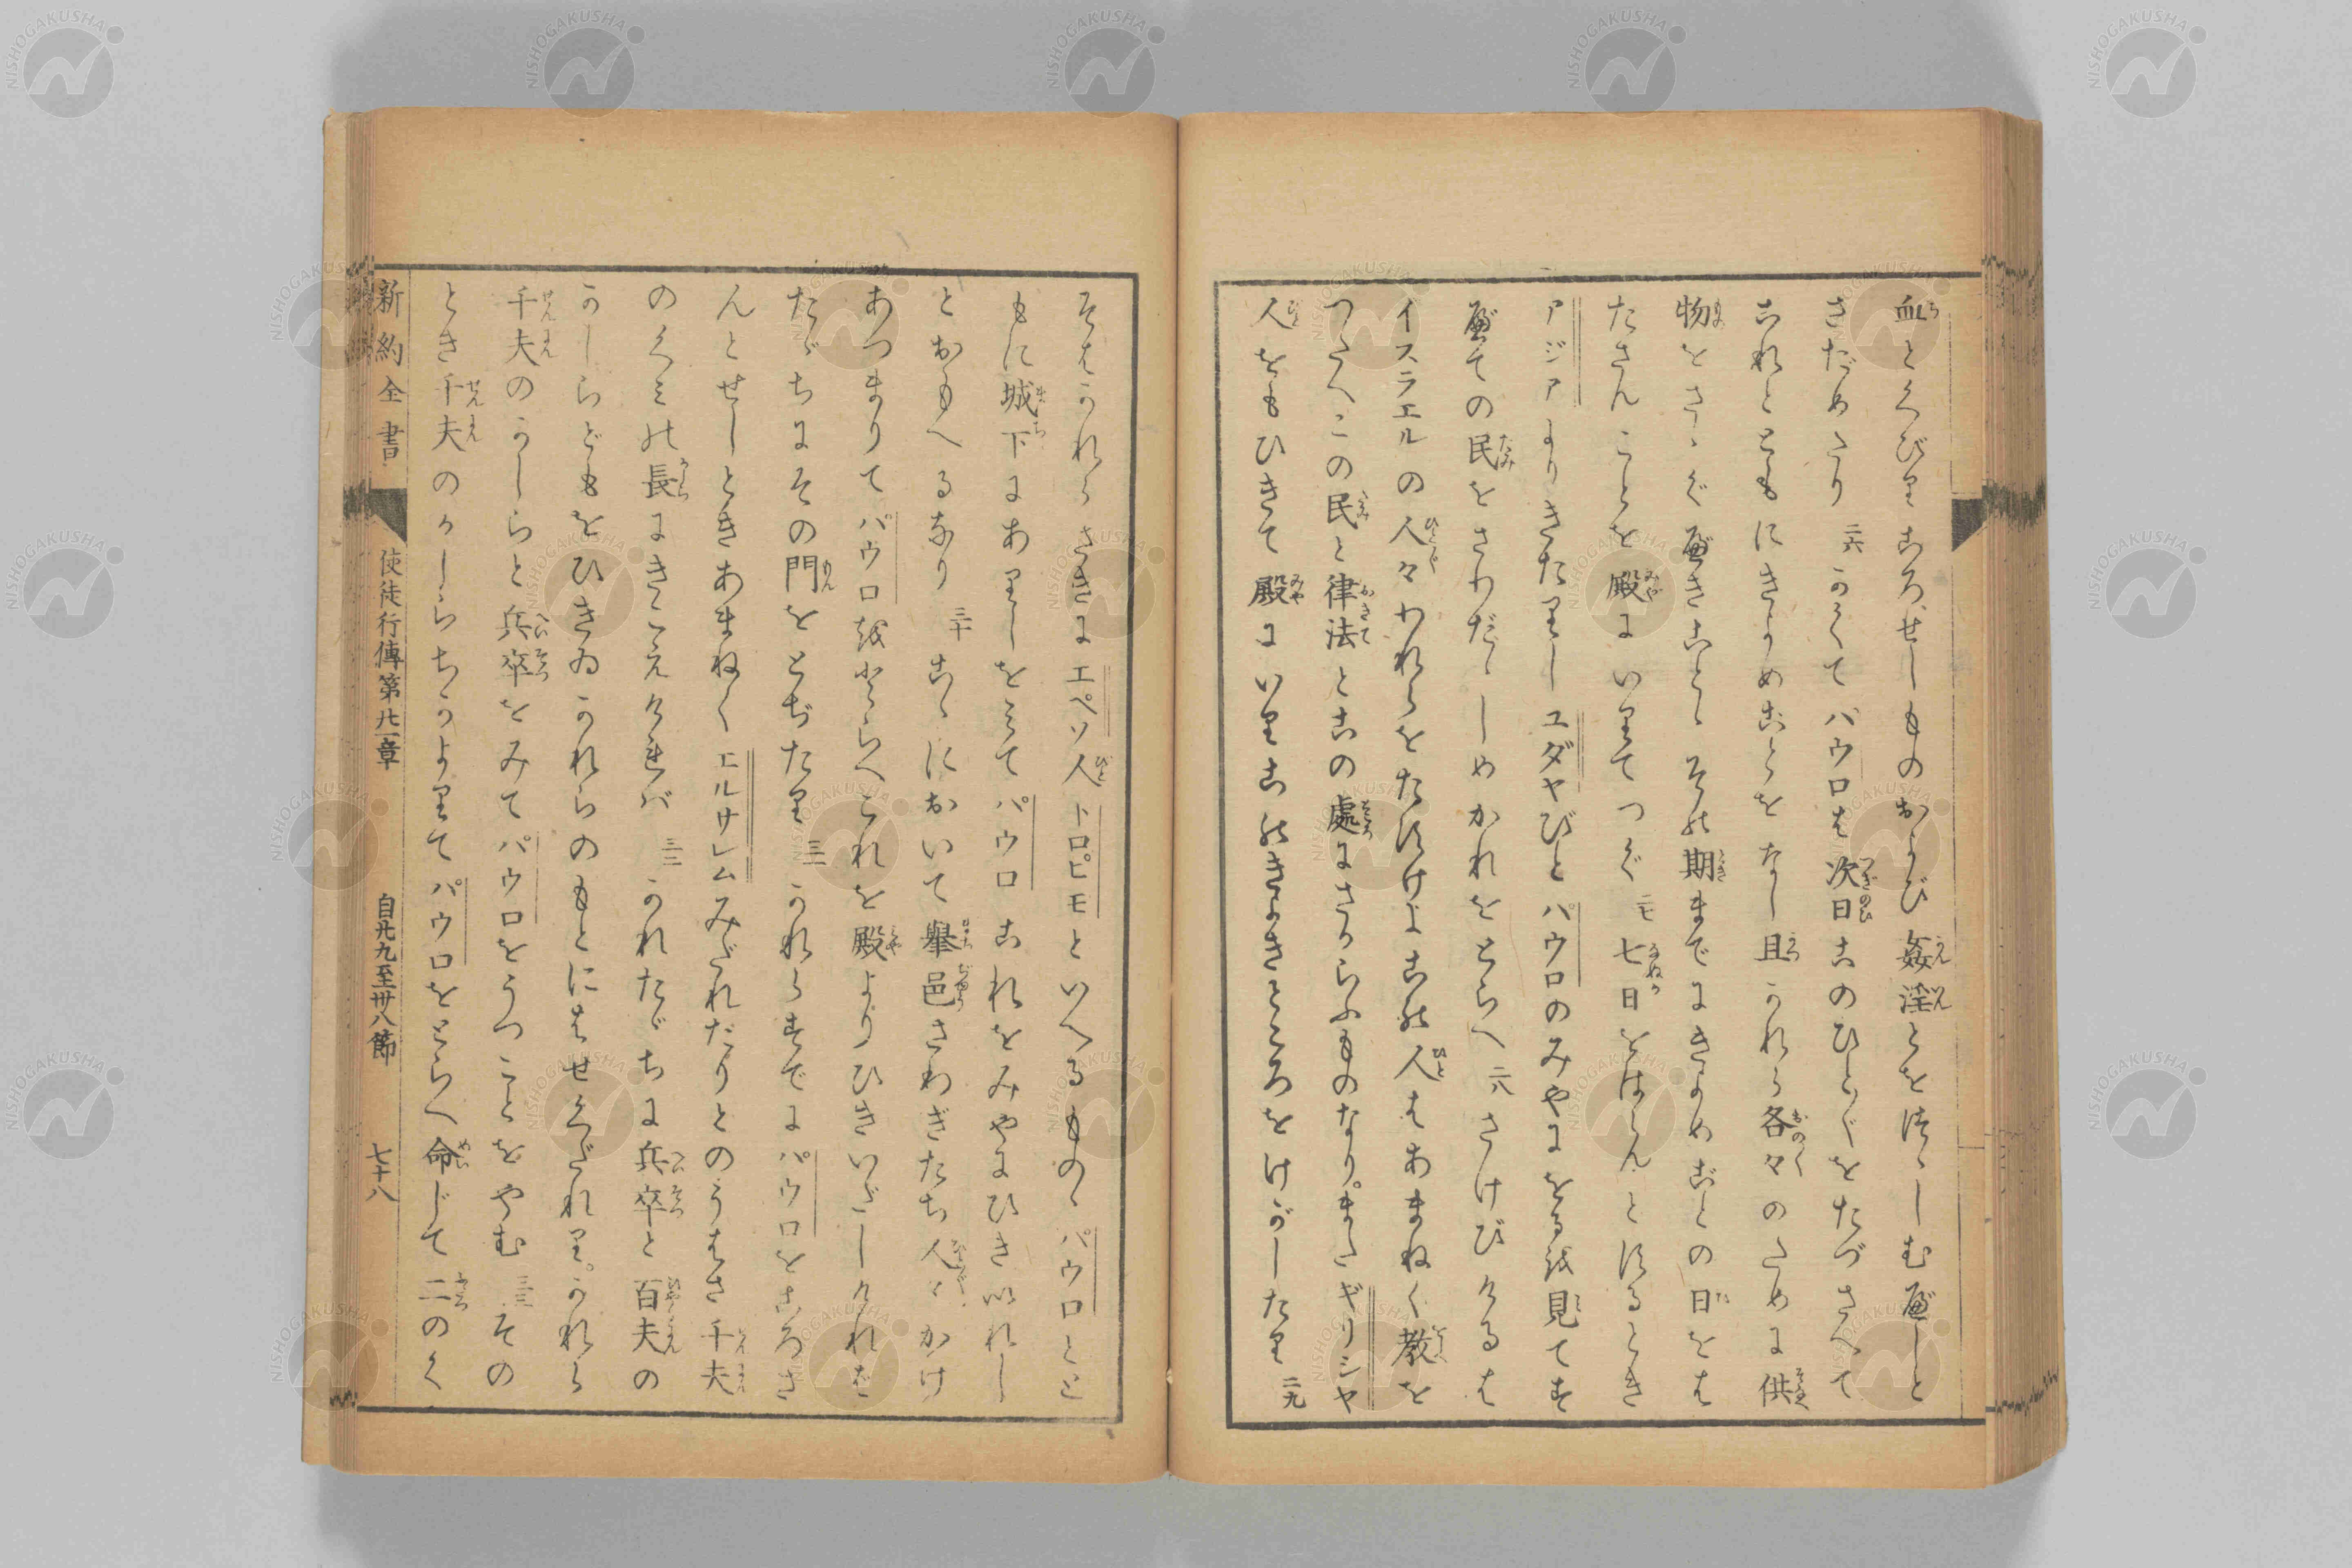 血とくびりころせしものおよび姦淫とをつゝしむべしと
さだめたり 二六 かくてパウロは次日このひとびとをたづさへて
これとともにきよめごとをなし且かれら各々のために供
物をさゝぐべきこと、その期までにきよめごとの日をは
たさんことを殿にいりてつぐ 二七 七日をはらんとするとき
アジアよりきたりしユダヤびとパウロのみやにをるを見てす
べての民をさわだゝしめかれをとらへ 二八 さけびけるは
イスラエルの人々われらをたすけよこの人はあまねく教を
つたへこの民と律法とこの處にさからふものなり。またギリシヤ
人をもひきて殿にいりこのきよきところをけがしたり 二九
そはかれらさきにエペソ人トロピモといへるものゝパウロとと
もに城下にありしをみてパウロこれをみやにひきいれし
とおもへるなり 三十 こゝにおいて擧邑さわぎたち人々かけ
あつまりてパウロをとらへこれを殿よりひきいだしければ
たゞちにその門をとぢたり 三一 かれらすでにパウロをころさ
んとせしときあまねくエルサレムみだれたりとのうはさ千夫
のくみの長にきこえければ 三二 かれたゞちに兵卒と百夫の
かしらどもをひきゐかれらのもとにはせくだれり。かれら
千夫のかしらと兵卒をみてパウロをうつことをやむ 三三 その
とき千夫のかしらちかよりてパウロをとらへ命じて二のく
新約全書 使徒行傳第廿一章 自廿九至卅八節 七十八
NISHOGAKUSHA